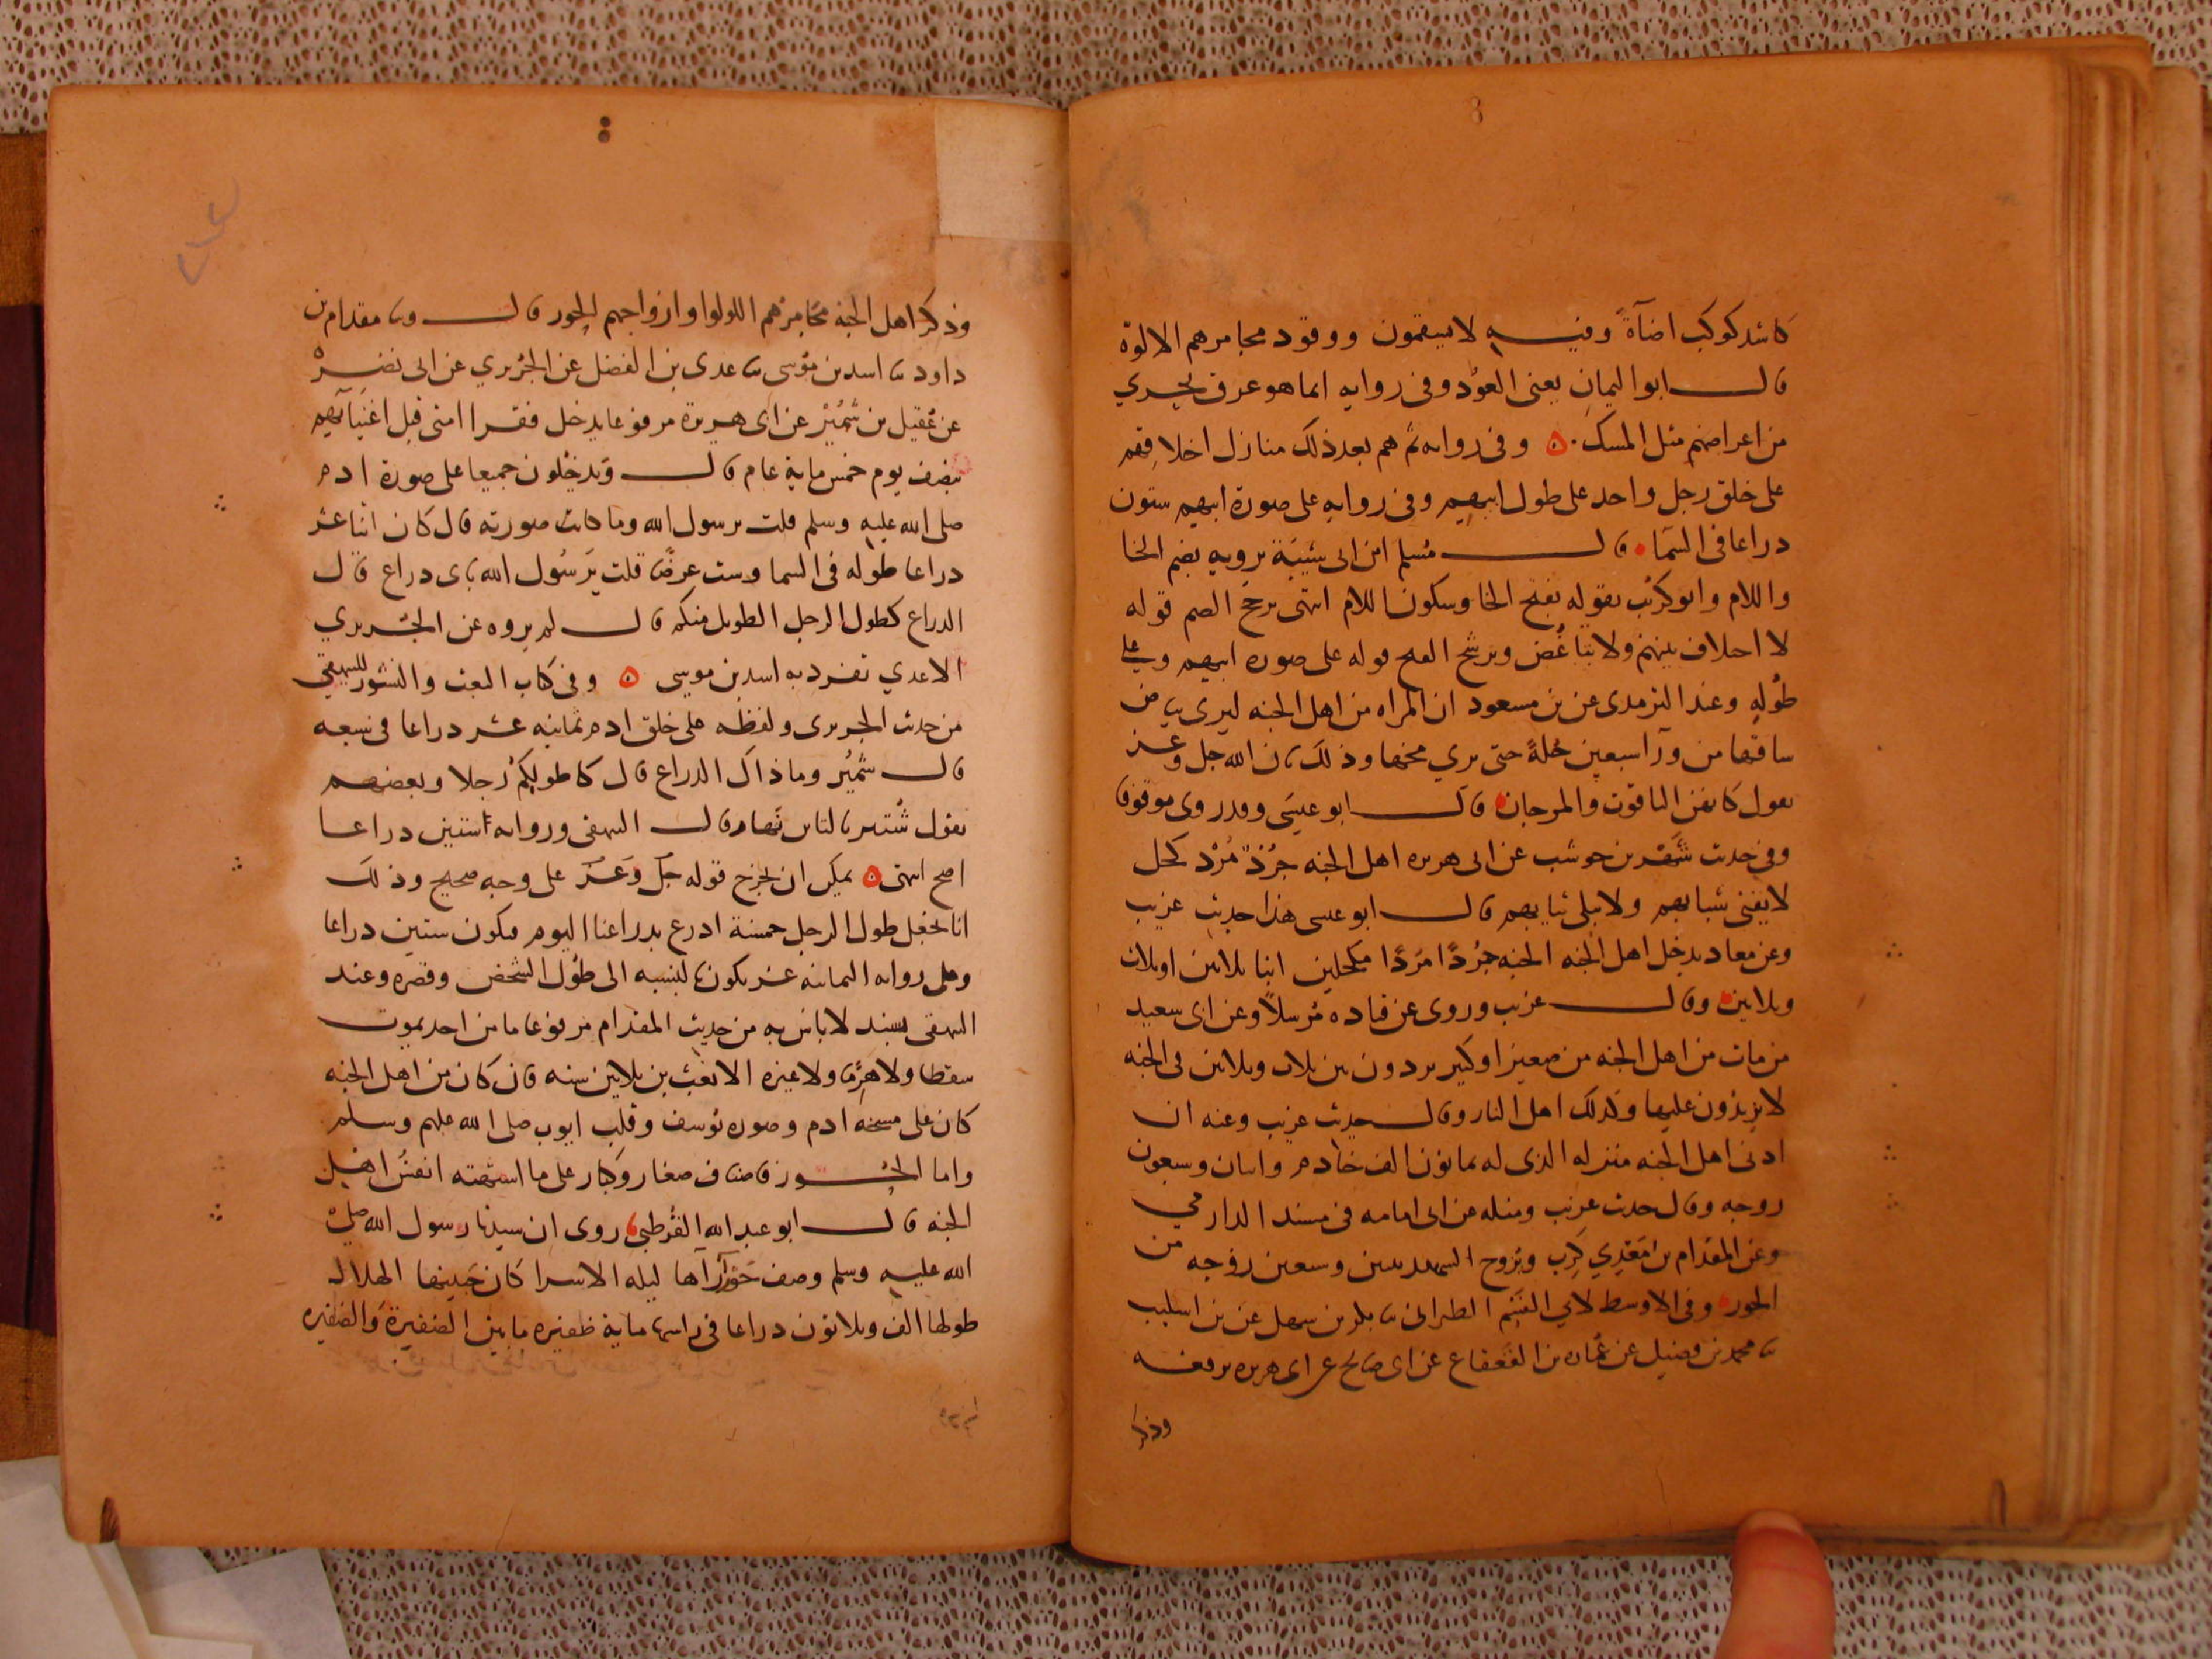 كاشد كوكب اضآةً وفيه لا يسقمون ووقود مجامرهم الالوة
قال ابو اليمان يعنى العوْد وفى روايه انما هو عرق يجري
من اعراضهم مثل المسك ه وفى روايه ثم هم بعد ذلك منازل اخلاقهم
على خلق رجل واحد على طول ابيهم وفى روايه على صورة ابيهم ستون
دراعا فى السمَا قال مُسلم ابن ابى شَيبَة يرويه بضم الخا
واللام وابو كرَيب يقوله بفتح الخا وسكون اللام انتهى يرجح الضم قوله
لا اختلاف بينهم ولا تباغُض ويرشح الفتح قوله على صوره ابيهم وعلى
طُوله وعند الترمدى عن بن مسعود ان المراه من اهل الجنه ليرى بياض
ساقها من ورآ سبعين حُلةً حتى يري مخها وذلك بان الله جل وعز
يقول كانهن الياقوت والمرجان قال ابو عيسَى وقد روى موقوفا
وفى حديث شَهْر بن حوشب عن ابى هريره اهل الجنه جُرْدٌ مُرْد كحل
لا يفنى شبابهم ولا يبلى ثيابهم قال ابو عيسى هذا حديث غريب
وعن معاد يدخل اهل الجنه الجنه جُردًا مُردًا مكحلين ابنا ثلاثين او ثلاث
وثلاثين وقال غريب وروى عن قتاده مُرسلاً وعن ابى سعيد
من مات من اهل الجنه من صغير او كبير يردون بين ثلاث وثلاثين فى الجنه
لا يزيدُون عليها وكذلك اهل النار وقال حديث غريب وعنه ان
ادنى اهل الجنه منزله الذى له ثمانون الف خادم واثنان وسبعون
زوجه وقال حديث غريب ومثله عن ابى امامه فى مسند الدارمي
وعن المقدام بن مَعْدِي كَرِب ويزوج الشهيد ثنتين وسبعين زوجه من
الحور وفى الاوسط لابي القسم الطبرانى ثنا بكر بن سهل عن بن
ثنا محمد بن فضيل عن عُماره بن القَعقاع عن ابى صالح عن ابى هريره يرفعه
وذكر
وذكر اهل الجنه مجَامرهم اللولوا وازواجهم الحور قال وثنا مقدام بن
داود ثنا اسد بن مُوسى ثنا عدى بن الفضل عن الجُريري عن ابى نضره
عن عُقيل بن سُمَيْر عن ابى هريرة مرفوعا يدخل فقرا امتى قبل اغنيَآئهم
بنصف يوم خمس ماية عام قال ويدخُلون جميعا على صورة ادم
صلى الله عليه وسلم قلت يرسول الله وما كانت صورته قال كان اثنا عشر
دراعا طوله فى السما وست عرضًا قلت يَرسُول الله باى دراع قال
الدراع كطول الرجل الطويل منكم قال لم يروه عن الجُريري
الا عدي تفرد به اسد بن موسى ه وفى كتاب البعث والنشور للبيهقي
من حديث الجريرى ولفظه على خلق ادم ثمانيه عشر دراعا فى سبعه
قال سُمَيْر وما ذاك الدراع قال كاطولكُم رجلا وبعضهم
يقول شُتير بالتاء قال البيهقى وروايه الستين دراعا
اصح انتهى ه يمكن ان يخرج قوله جَل وَعَزّ على وجه صحيح وذلك
انا نجعل طول الرجل خمسة ادرع بدراعنا اليوم فيكون ستين دراعا
وعلى روايه الثمانيه عشر يكون بالنسبه الى طُول الشخص وقصره وعند
البيهقى بسند لا باس به من حديث المقدام مرفوعا ما من احد يموت
سقطا ولا هَرِمًا ولا غيره الا بُعث بن ثلاثين سنه فان كان من اهل الجنه
كان على مسحة ادم وصوره يُوسف وقلب ايوب صلى الله عليهم وسلم
واما الحُور فاصناف صغار وكبار على ما اشتهته انفسُ اهل
الجنه قال ابو عبد الله القُرطبى روى ان سيدنا رسول الله صلى
الله عليه وسلم وصف حَوْرَآ رآها ليله الاسرا كان جَبينها الهلال
طولها الف وثلاثون دراعا فى راسها ماية ظفيره ما بين الضفيرة وَالضفيره